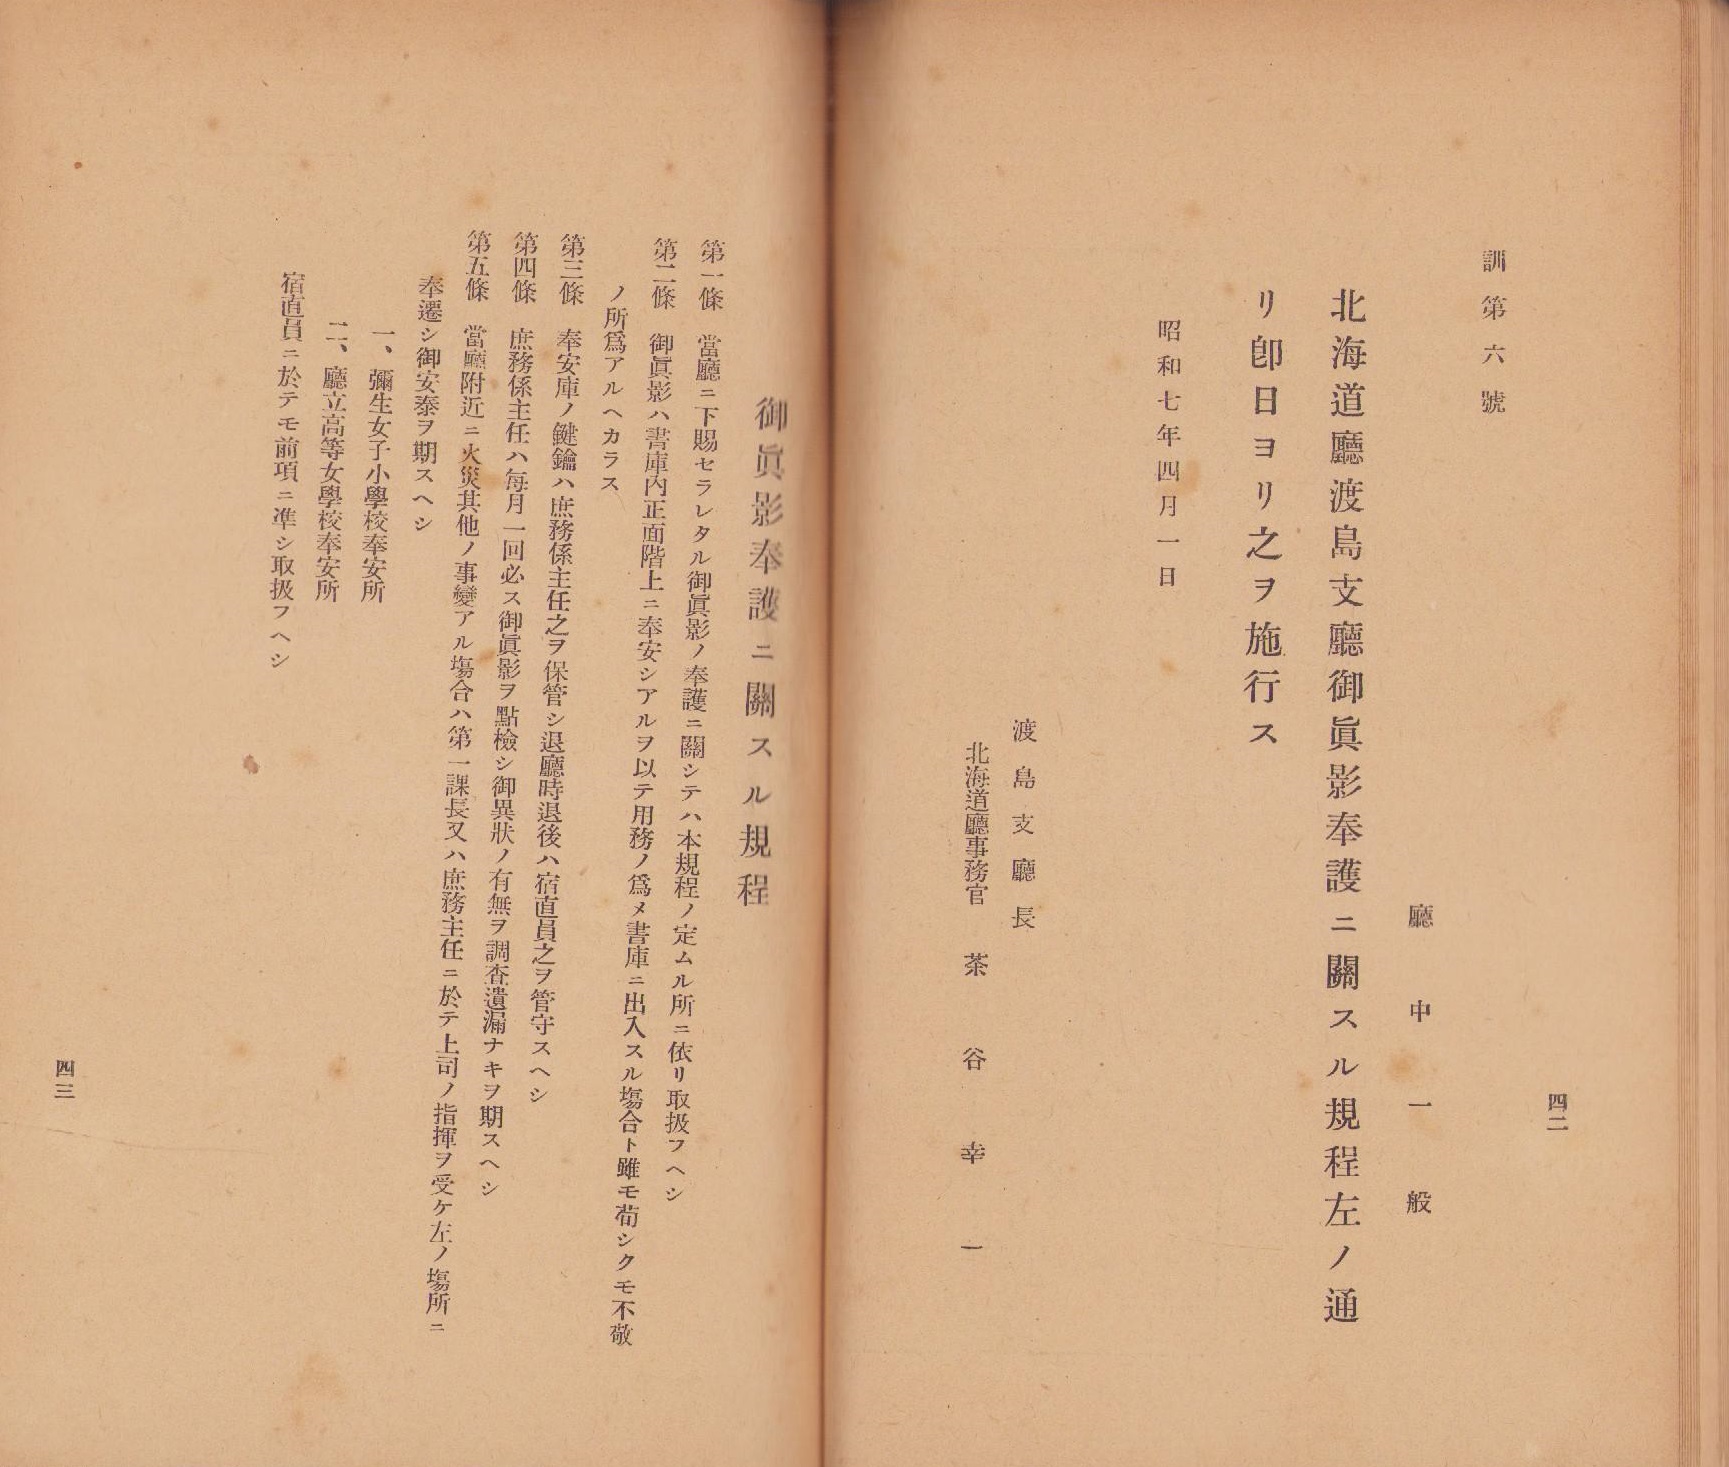 四二
訓第六號
廳中一般
北海道廳渡島支廳御眞影奉護ニ關スル規程左ノ通
リ卽日ヨリ之ヲ施行ス
昭和七年四月一日
渡島支廳長
北海道廳事務官 茶谷幸一
御眞影奉護ニ關スル規程
第一條 當廳ニ下賜セラレタル御眞影ノ奉護ニ關シテハ本規程ノ定ムル所ニ依リ取扱フヘシ
第二條 御眞影ハ書庫內正面階上ニ奉安シアルヲ以テ用務ノ爲メ書庫ニ出入スル塲合ト雖モ荀シクモ不敬
ノ所爲アルヘカラス
第三條 奉安庫ノ鍵鑰ハ庶務係主任之ヲ保管シ退廳時退後ハ宿直員之ヲ管守スヘシ
第四條 庶務係主任ハ每月一回必ス御眞影ヲ點檢シ御異狀ノ有無ヲ調査遺漏ナキヲ期スヘシ
第五條 當廳附近ニ火災其他ノ事變アル塲合ハ第一課長又ハ庶務主任ニ於テ上司ノ指揮ヲ受ケ左ノ塲所ニ
奉遷シ御安泰ヲ期スヘシ
一、彌生女子小學校奉安所
二、廳立高等女學校奉安所
宿直員ニ於テモ前項ニ準シ取扱フヘシ
四三